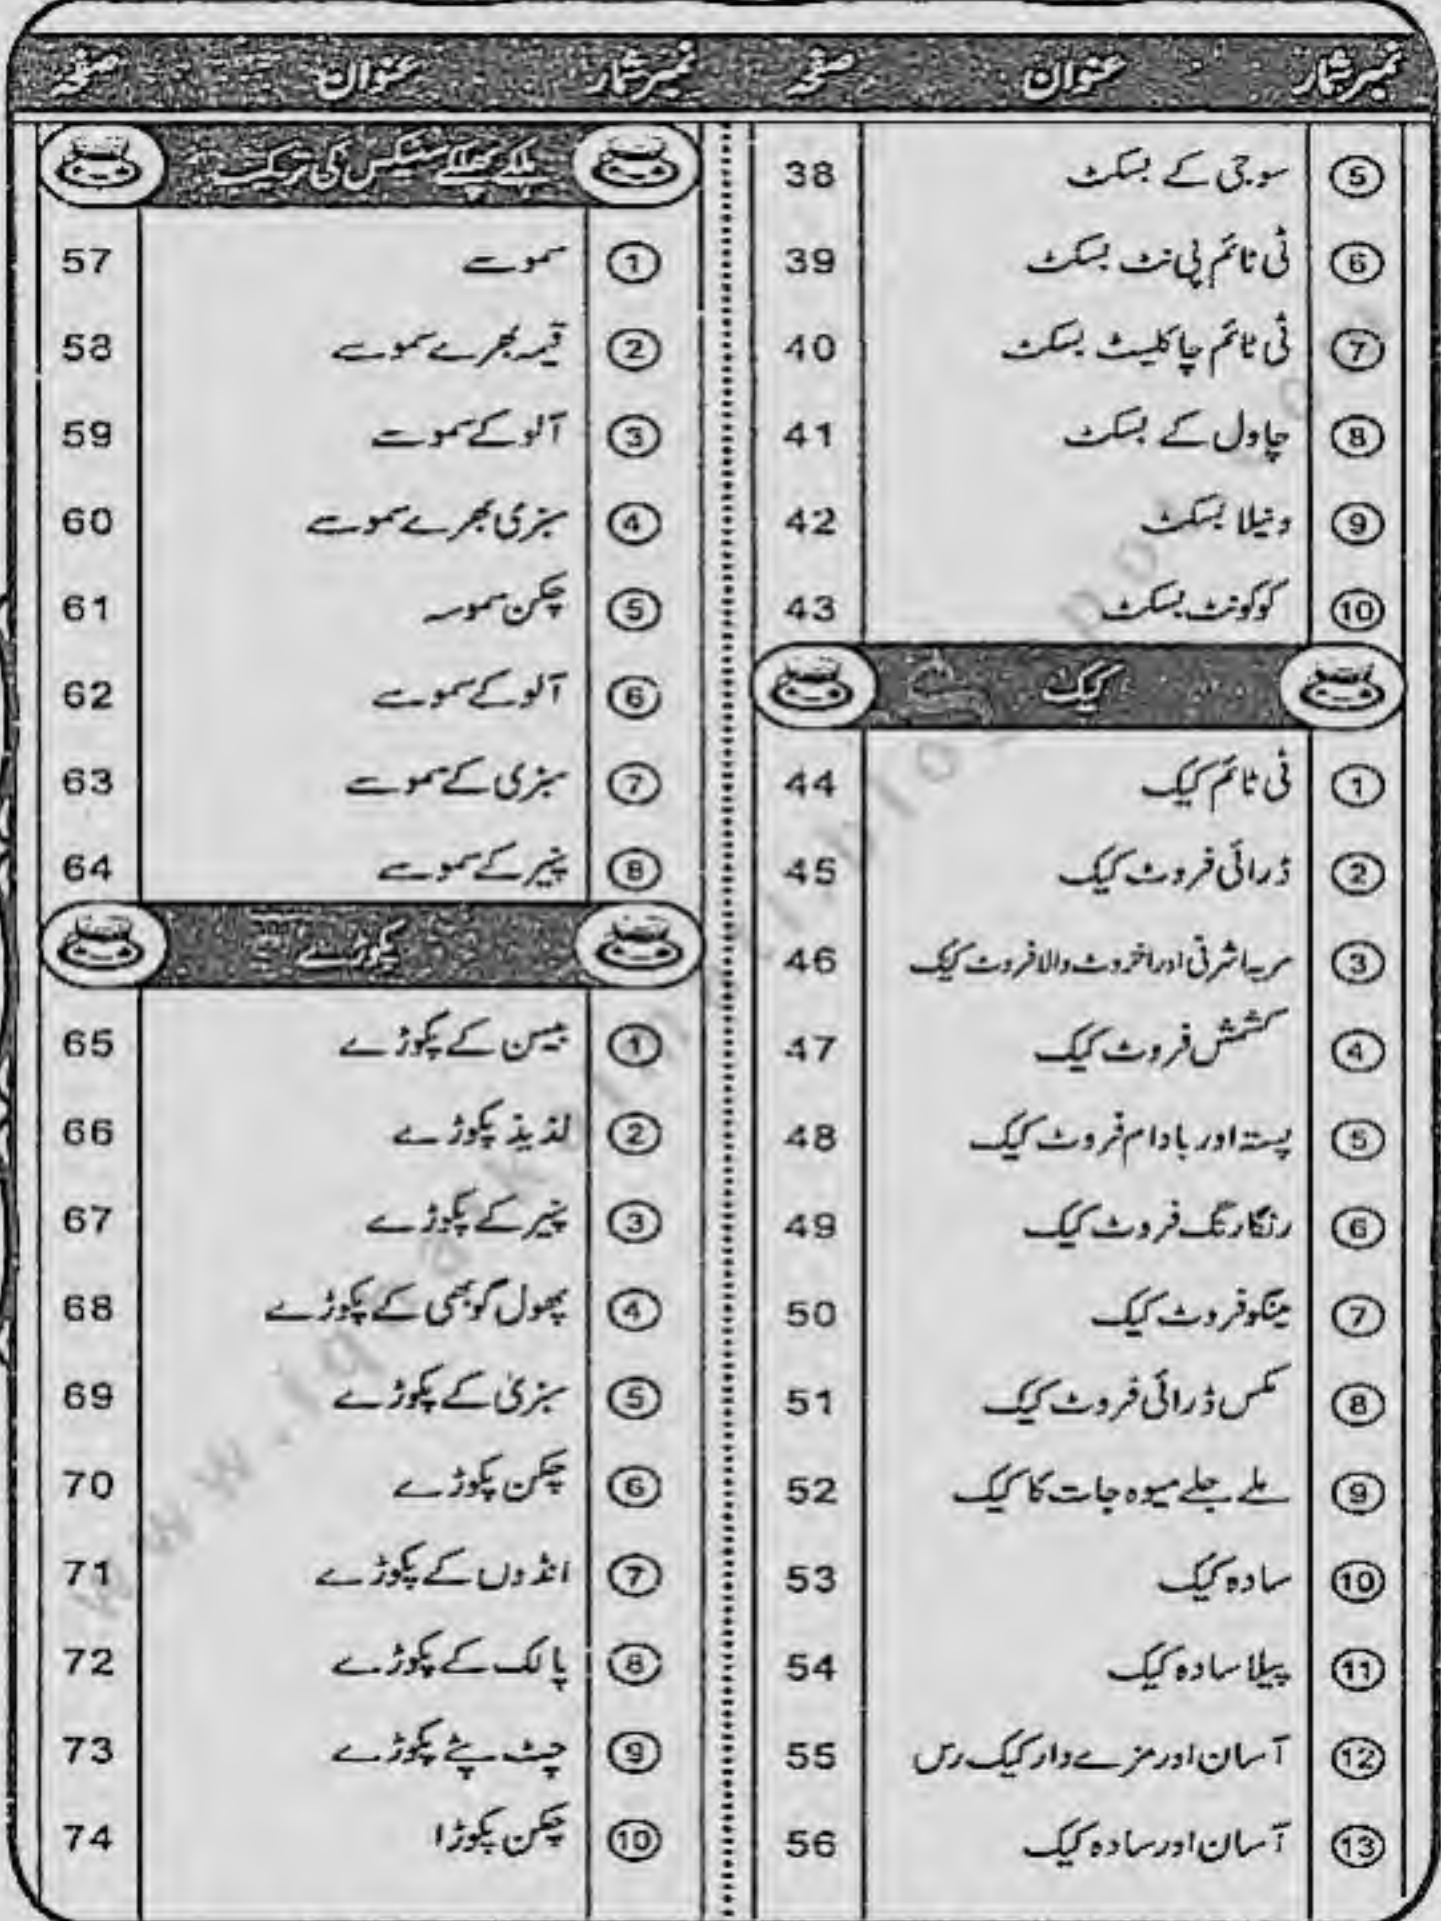 نمبر شمار عنوان صفحہ
⑤ سوجی کے بسکٹ 38
⑥ ٹی ٹائم پی نٹ بسکٹ 39
⑦ ٹی ٹائم چاکلیٹ بسکٹ 40
⑧ چاول کے بسکٹ 41
⑨ ونیلا بسکٹ 42
⑩ کوکونٹ بسکٹ 43
کیک
① ٹی ٹائم کیک 44
② ڈرائی فروٹ کیک 45
③ مربہ اشرفی اور اخروٹ والا فروٹ کیک 46
④ کشمش فروٹ کیک 47
⑤ پستہ اور بادام فروٹ کیک 48
⑥ رنگا رنگ فروٹ کیک 49
⑦ مینگو فروٹ کیک 50
⑧ مکس ڈرائی فروٹ کیک 51
⑨ ملے جلے میوہ جات کا کیک 52
⑩ سادہ کیک 53
⑪ پیلا سادہ کیک 54
⑫ آسان اور مزے دار کیک رس 55
⑬ آسان اور سادہ کیک 56
نمبر شمار عنوان صفحہ
ہلکے پھلکے سنیکس کی ترکیب
① سموسے 57
② قیمہ بھرے سموسے 58
③ آلو کے سموسے 59
④ سبزی بھرے سموسے 60
⑤ چکن سموسہ 61
⑥ آلو کے سموسے 62
⑦ سبزی کے سموسے 63
⑧ پنیر کے سموسے 64
پکوڑے
① بیسن کے پکوڑے 65
② لذیذ پکوڑے 66
③ پنیر کے پکوڑے 67
④ پھول گوبھی کے پکوڑے 68
⑤ سبزی کے پکوڑے 69
⑥ چکن پکوڑے 70
⑦ انڈوں کے پکوڑے 71
⑧ پالک کے پکوڑے 72
⑨ چٹ پٹے پکوڑے 73
⑩ چکن پکوڑا 74